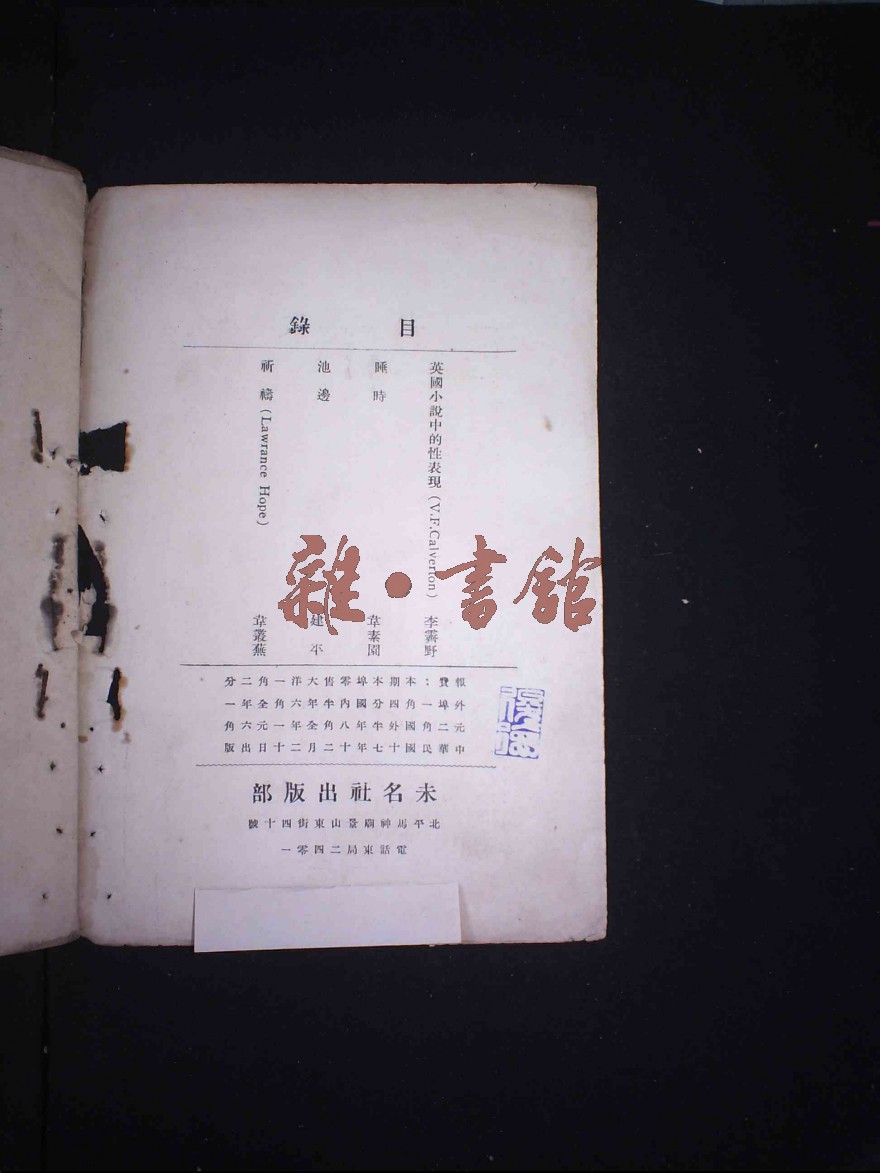 目錄
英國小說中的性表現(V.F.Calverton) 李霽野
睡時 韋素園
池邊 建平
祈禱(Lawrance Hope) 韋叢蕪
報費：本期本埠零售大洋一角二分
外埠一角四分國內半年六角全年一
元二角國外半年八角全年一元六角
中華民國十七年十二月二十日出版
未名社出版部
北平馬神廟景山東街四十號
電話東局二四零一
雜·書館